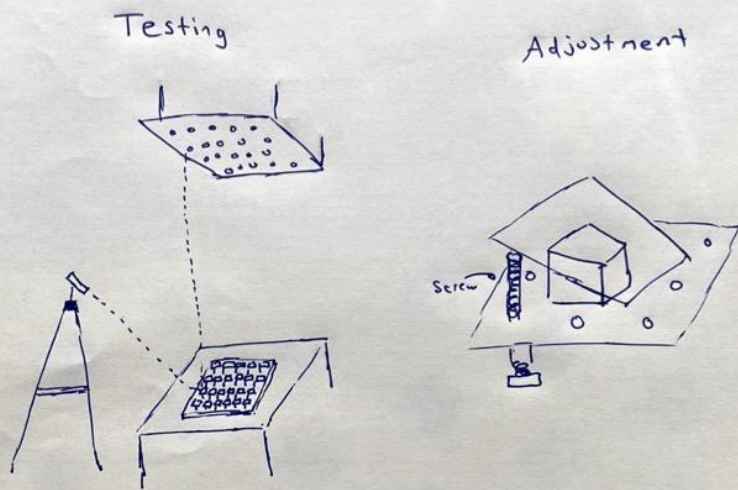 Testing
Adjustment
Screw